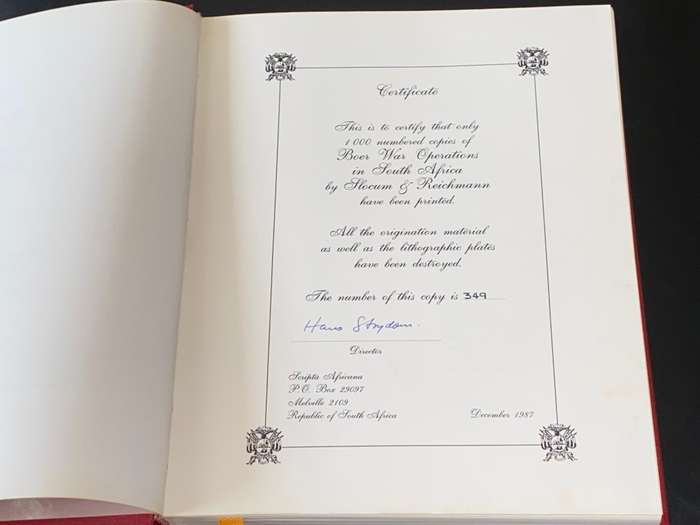 Certificate
This is to certify that only
1 000 numbered copies of
Boer War Operations
in South Africa
by Slocum & Reichmann
have been printed.
All the origination material
as well as the lithographic plates
have been destroyed.
The number of this copy is 349
Hans Strydom.
Director
Scripta Africana
P.O. Box 29097
Melville 2109
Republic of South Africa
December 1987